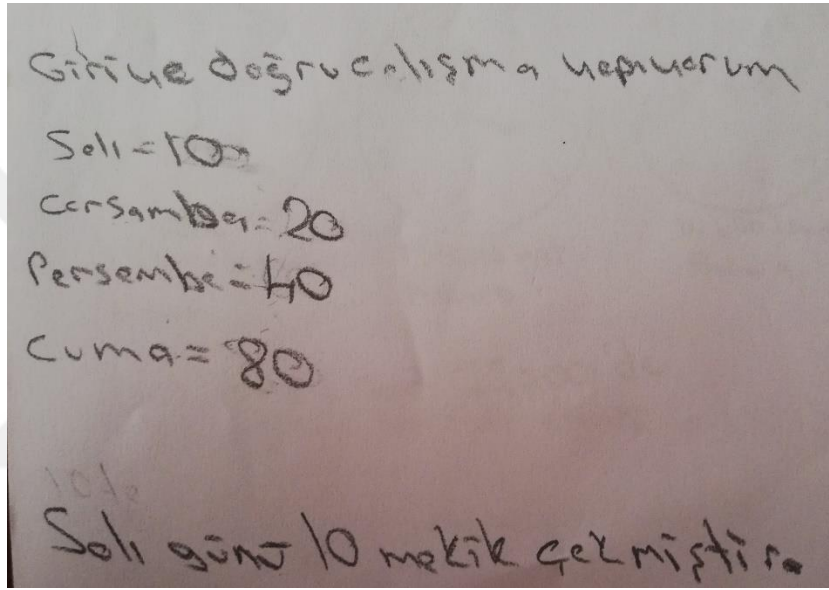 Giriye doğru çalışma yapıyorum
Salı = 10
Çarşamba = 20
Perşembe = 40
Cuma = 80
Salı günü 10 mekik çekmiştir.